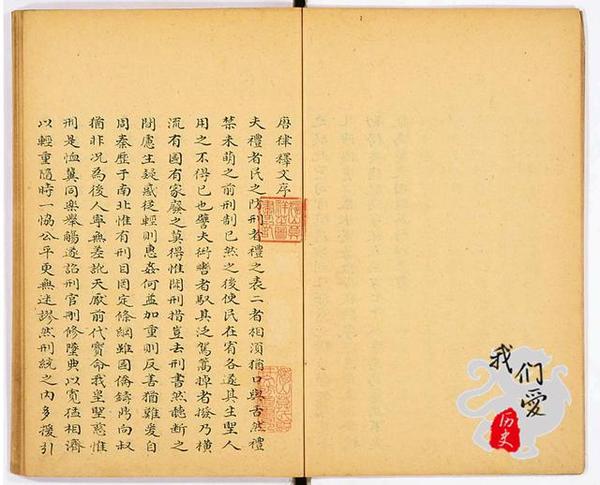 唐律釋文序
夫禮者民之防刑者禮之表二者相須猶口與舌然禮
禁未萌之前刑制已然之後使民在宥各遂其生聖人
用之不得已也譬夫銜轡者馭其泛駕篙棹者撥乃橫
流有國有家廢之莫得惟聞刑措豈去刑書然聽斷之
間慮生疑惑從輕則惠姦何益加重則反害猶難爰自
周秦歷于南北惟有刑目罔定條綱雖國僑鑄將向叔
猶非况為後人寧無差訛天厭前代寶命我皇聖慈惟
刑是恤冀同樂舉觴遂詔刑官刪修墜典以寬猛相濟
以輕重隨時一協公平更無迷謬然刑統之內多援引
我们愛
历史